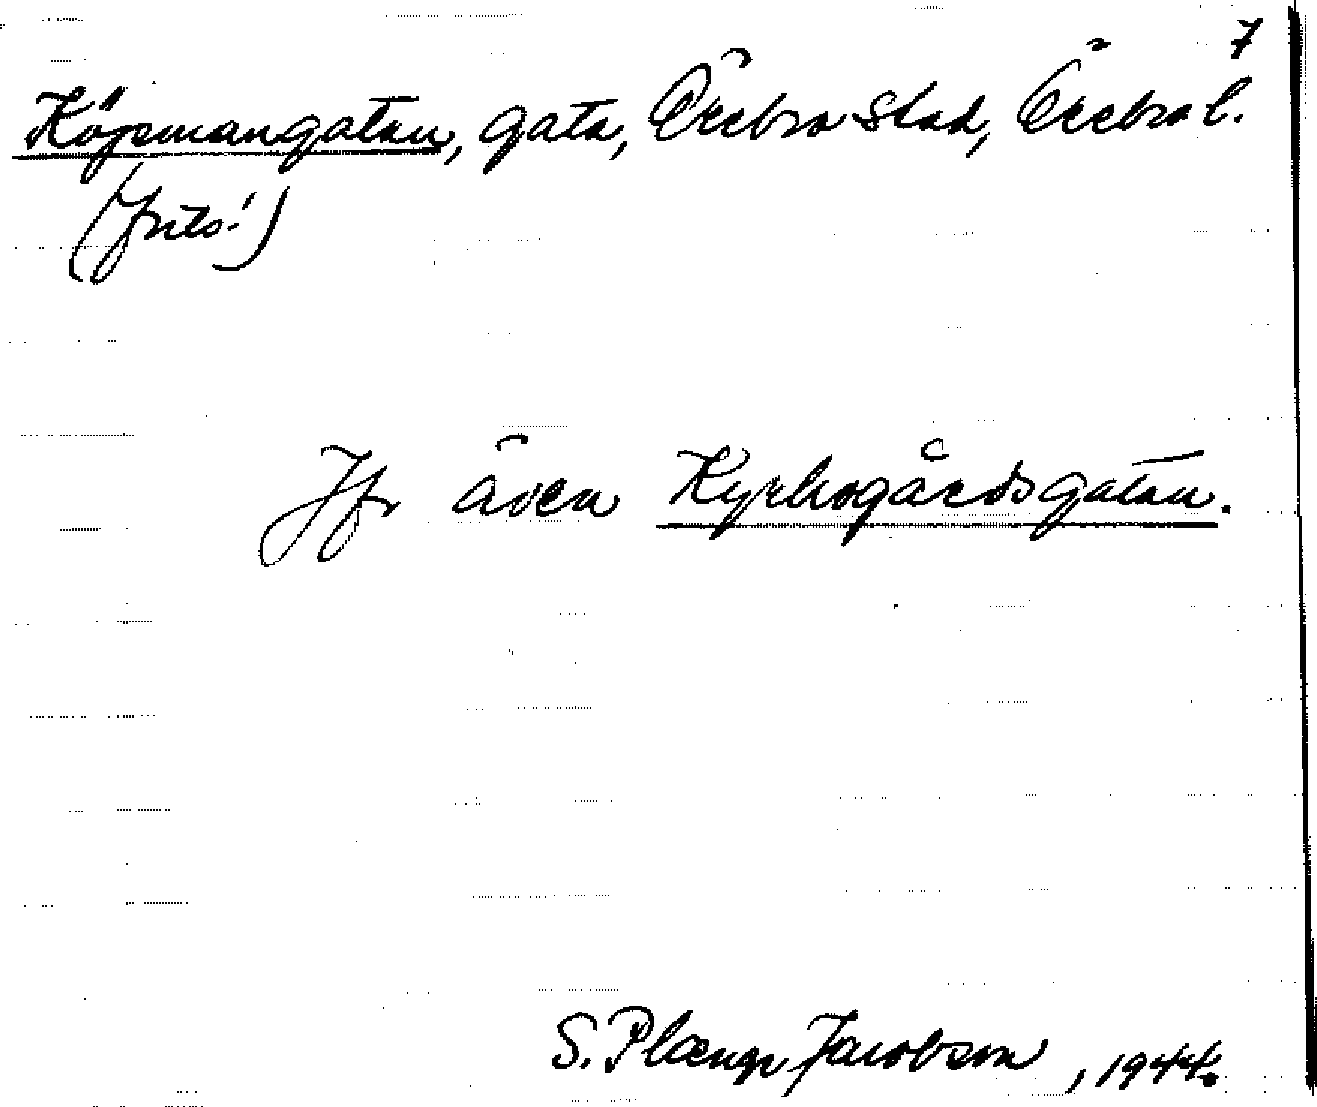 7
Köpmangatan, gata, Örebro stad, Örebro l.
(forts.)
Jfr även Kyrkogårdsgatan.
S. Plænge Jacobson, 1944.